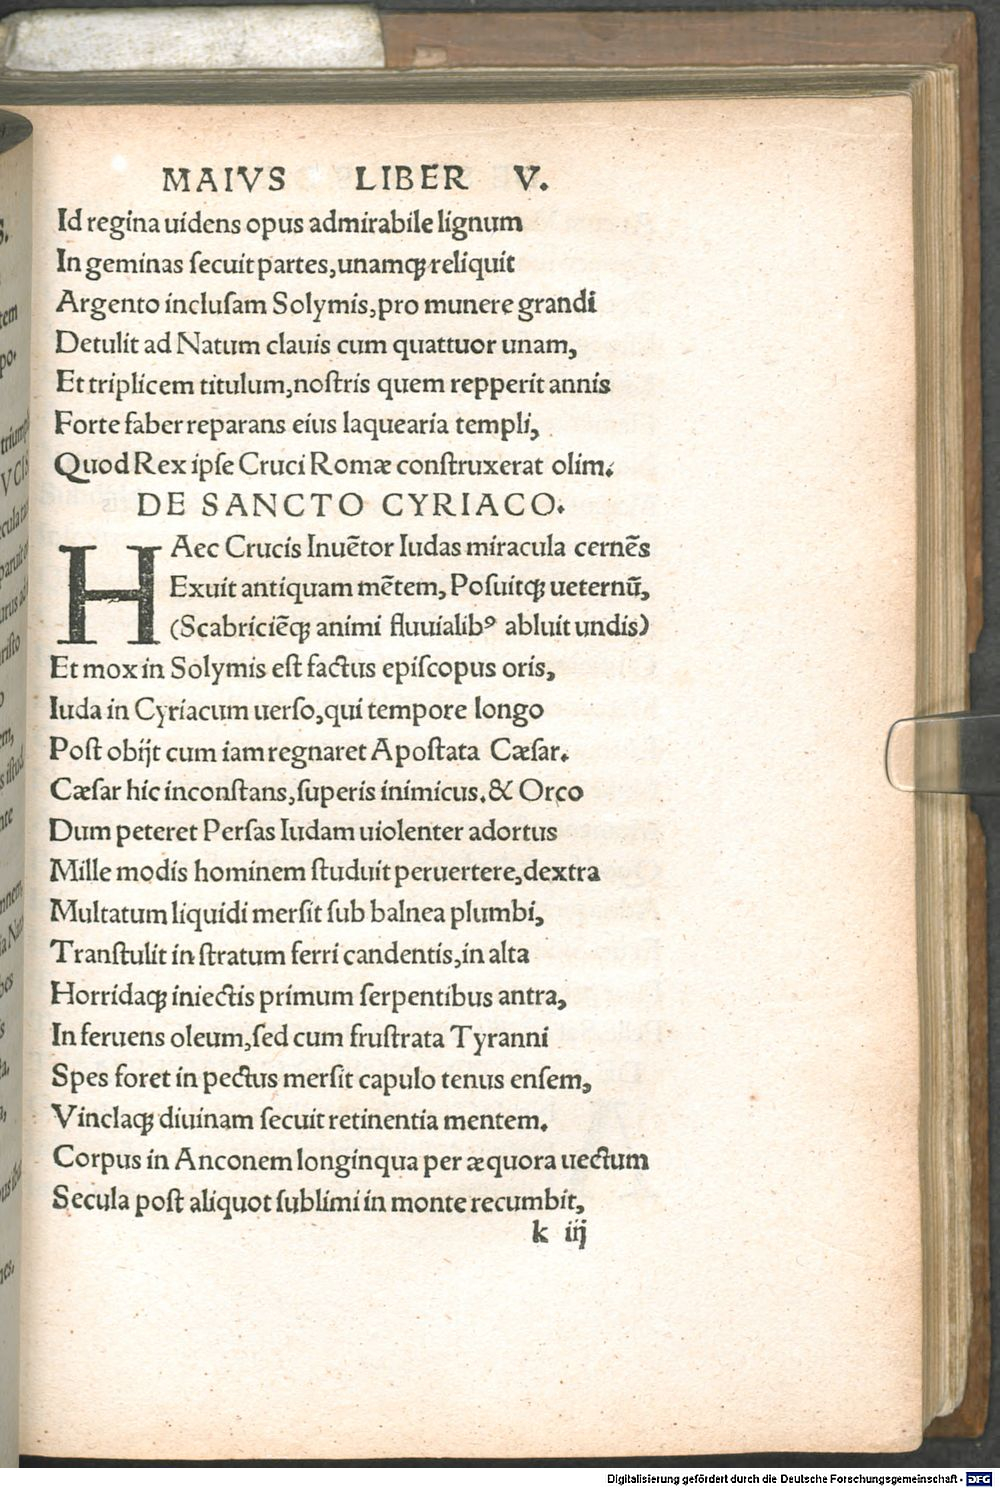 MAIVS LIBER V.
Id regina uidens opus admirabile lignum
In geminas ſecuit partes,unamqꝫ reliquit
Argento incluſam Solymis,pro munere grandi
Detulit ad Natum clauis cum quattuor unam,
Et triplicem titulum,noſtris quem repperit annis
Forte faber reparans eius laquearia templi,
Quod Rex ipſe Cruci Romæ conſtruxerat olim.
DE SANCTO CYRIACO.
HAec Crucis Inuẽtor Iudas miracula cernẽs
Exuit antiquam mẽtem, Poſuitqꝫ ueternũ,
(Scabriciẽqꝫ animi fluuialibꝰ abluit undis)
Et mox in Solymis eſt factus epiſcopus oris,
Iuda in Cyriacum uerſo,qui tempore longo
Poſt obijt cum iam regnaret Apoſtata Cæſar.
Cæſar hic inconſtans,ſuperis inimicus.& Orco
Dum peteret Perſas Iudam uiolenter adortus
Mille modis hominem ſtuduit peruertere,dextra
Multatum liquidi merſit ſub balnea plumbi,
Tranſtulit in ſtratum ferri candentis,in alta
Horridaqꝫ iniectis primum ſerpentibus antra,
In feruens oleum,ſed cum fruſtrata Tyranni
Spes foret in pectus merſit capulo tenus enſem,
Vinclaqꝫ diuinam ſecuit retinentia mentem.
Corpus in Anconem longinqua per æquora uectum
Secula poſt aliquot ſublimi in monte recumbit,
k iij
Digitalisierung gefördert durch die Deutsche Forschungsgemeinschaft - DFG